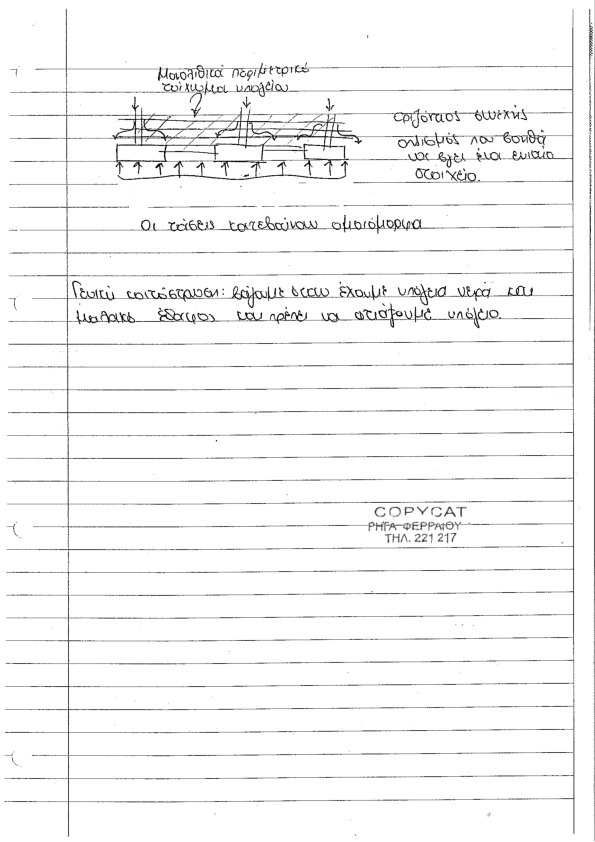 Μονολιθικά περιμετρικό
τοίχωμα υπογείου
οριζόντιος συνεχής
οπλισμός που βοηθά
να βγει ένα ενιαίο
στοιχείο.
Οι τάσεις κατεβαίνουν ομοιόμορφα
Γενική κοιτόστρωση: βάζουμε όταν έχουμε υπόγεια νερά και
μαλακό έδαφος και πρέπει να φτιάξουμε υπόγειο.
COPYCAT
ΡΗΓΑ ΦΕΡΡΑΙΟΥ
ΤΗΛ. 221 217